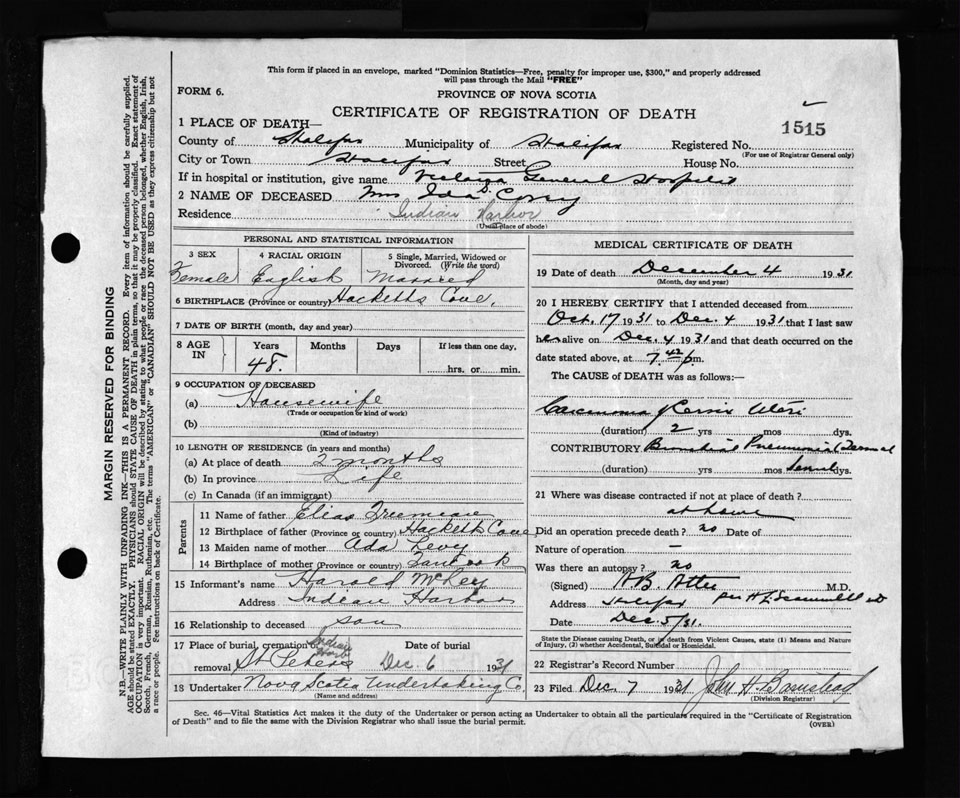 This form if placed in an envelope, marked "Dominion Statistics—Free, penalty for improper use, $300," and properly addressed
will pass through the Mail "FREE"
FORM 6.
PROVINCE OF NOVA SCOTIA
CERTIFICATE OF REGISTRATION OF DEATH
1515
1 PLACE OF DEATH—
County of Halifax Municipality of Halifax Registered No.
(For use of Registrar General only)
City or Town Halifax Street House No.
If in hospital or institution, give name Victoria General Hospital
2 NAME OF DECEASED Mrs Ida S. Corry
Residence Indian Harbor
(Usual place of abode)
PERSONAL AND STATISTICAL INFORMATION
3 SEX
Female
4 RACIAL ORIGIN
English
5 Single, Married, Widowed or
Divorced. (Write the word)
Married
6 BIRTHPLACE (Province or country) Hacketts Cove,
7 DATE OF BIRTH (month, day and year)
8 AGE IN
Years Months Days If less than one day.
48. hrs. or min.
9 OCCUPATION OF DECEASED
(a) Housewife
(Trade or occupation or kind of work)
(b)
(Kind of industry)
10 LENGTH OF RESIDENCE (in years and months)
(a) At place of death 2 months
(b) In province Life
(c) In Canada (if an immigrant)
Parents
11 Name of father Elias
12 Birthplace of father (Province or country) Hacketts Cove
13 Maiden name of mother Ada Levy
14 Birthplace of mother (Province or country) Tancook
15 Informant's name Harold
Address Indian Harbor
16 Relationship to deceased son
17 Place of burial, cremation or
removal St Peters Indian Harb
Date of burial
Dec 6 1931
18 Undertaker Nova Scotia Undertaking Co
(Name and address)
MEDICAL CERTIFICATE OF DEATH
19 Date of death December 4 1931
(Month, day and year)
20 I HEREBY CERTIFY that I attended deceased from
Oct. 17 1931 to Dec. 4 1931 that I last saw
her alive on Dec. 4 1931 and that death occurred on the
date stated above, at 7.42 p.m.
The CAUSE of DEATH was as follows:—
Carcinoma of Cervix Uteri
(duration) 2 yrs mos dys.
CONTRIBUTORY Bronchial Pneumonia Terminal
(duration) yrs mos dys.
21 Where was disease contracted if not at place of death?
at home
Did an operation precede death? no Date of
Nature of operation —
Was there an autopsy? no
(Signed) M.D.
Address Halifax per
Date Dec. 5/31.
State the Disease causing Death, or in death from Violent Causes, state (1) Means and Nature
of Injury, (2) whether Accidental, Suicidal or Homicidal.
22 Registrar's Record Number
23 Filed Dec 7 1931 John H
(Division Registrar)
Sec. 46—Vital Statistics Act makes it the duty of the Undertaker or person acting as Undertaker to obtain all the particulars required in the "Certificate of Registration
of Death" and to file the same with the Division Registrar who shall issue the burial permit.
(OVER)
MARGIN RESERVED FOR BINDING
N.B.—WRITE PLAINLY WITH UNFADING INK—THIS IS A PERMANENT RECORD. Every item of information should be carefully supplied.
AGE should be stated EXACTLY. PHYSICIANS should STATE CAUSE OF DEATH in plain terms, so that it may be properly classified. Exact statement of
OCCUPATION is very important. RACIAL ORIGIN will be described by stating to what people or race the deceased person belonged, whether English, Irish,
Scotch, French, German, Russian, Ruthenian, etc. The terms "AMERICAN" or "CANADIAN" SHOULD NOT BE USED as they express citizenship but not
a race or people. See instructions on back of Certificate.